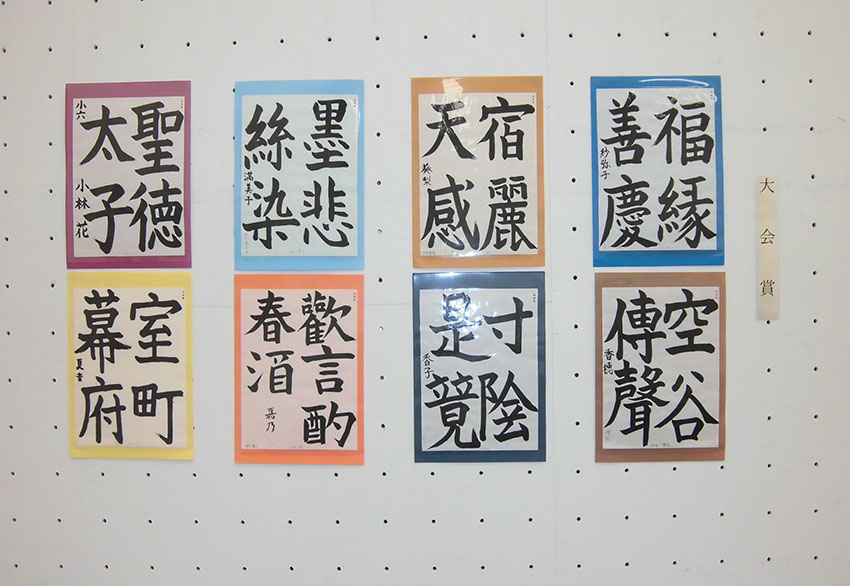 大会賞
福縁
善慶
紗弥子
宿麗
天感
墨悲
絲染
満美子
聖徳
太子
小六 小林花
空谷
傳聲
寸陰
是競
香子
歡言酌
春酒
嘉乃
室町
幕府